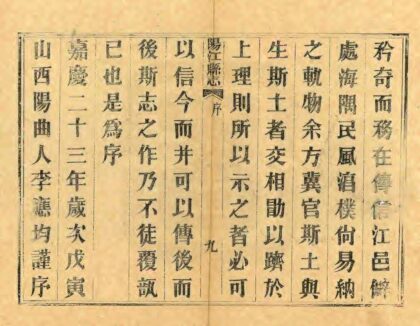 矜奇而務在傳信江邑僻
處海隅民風湻樸尚易納
之軌物余方冀官斯土與
生斯土者交相勖以躋於
上理則所以示之者必可
陽江縣志 序 九
以信今而并可以傳後而
後斯志之作乃不徒覆瓿
已也是爲序
嘉慶二十三年歲次戊寅
山西陽曲人李應均謹序